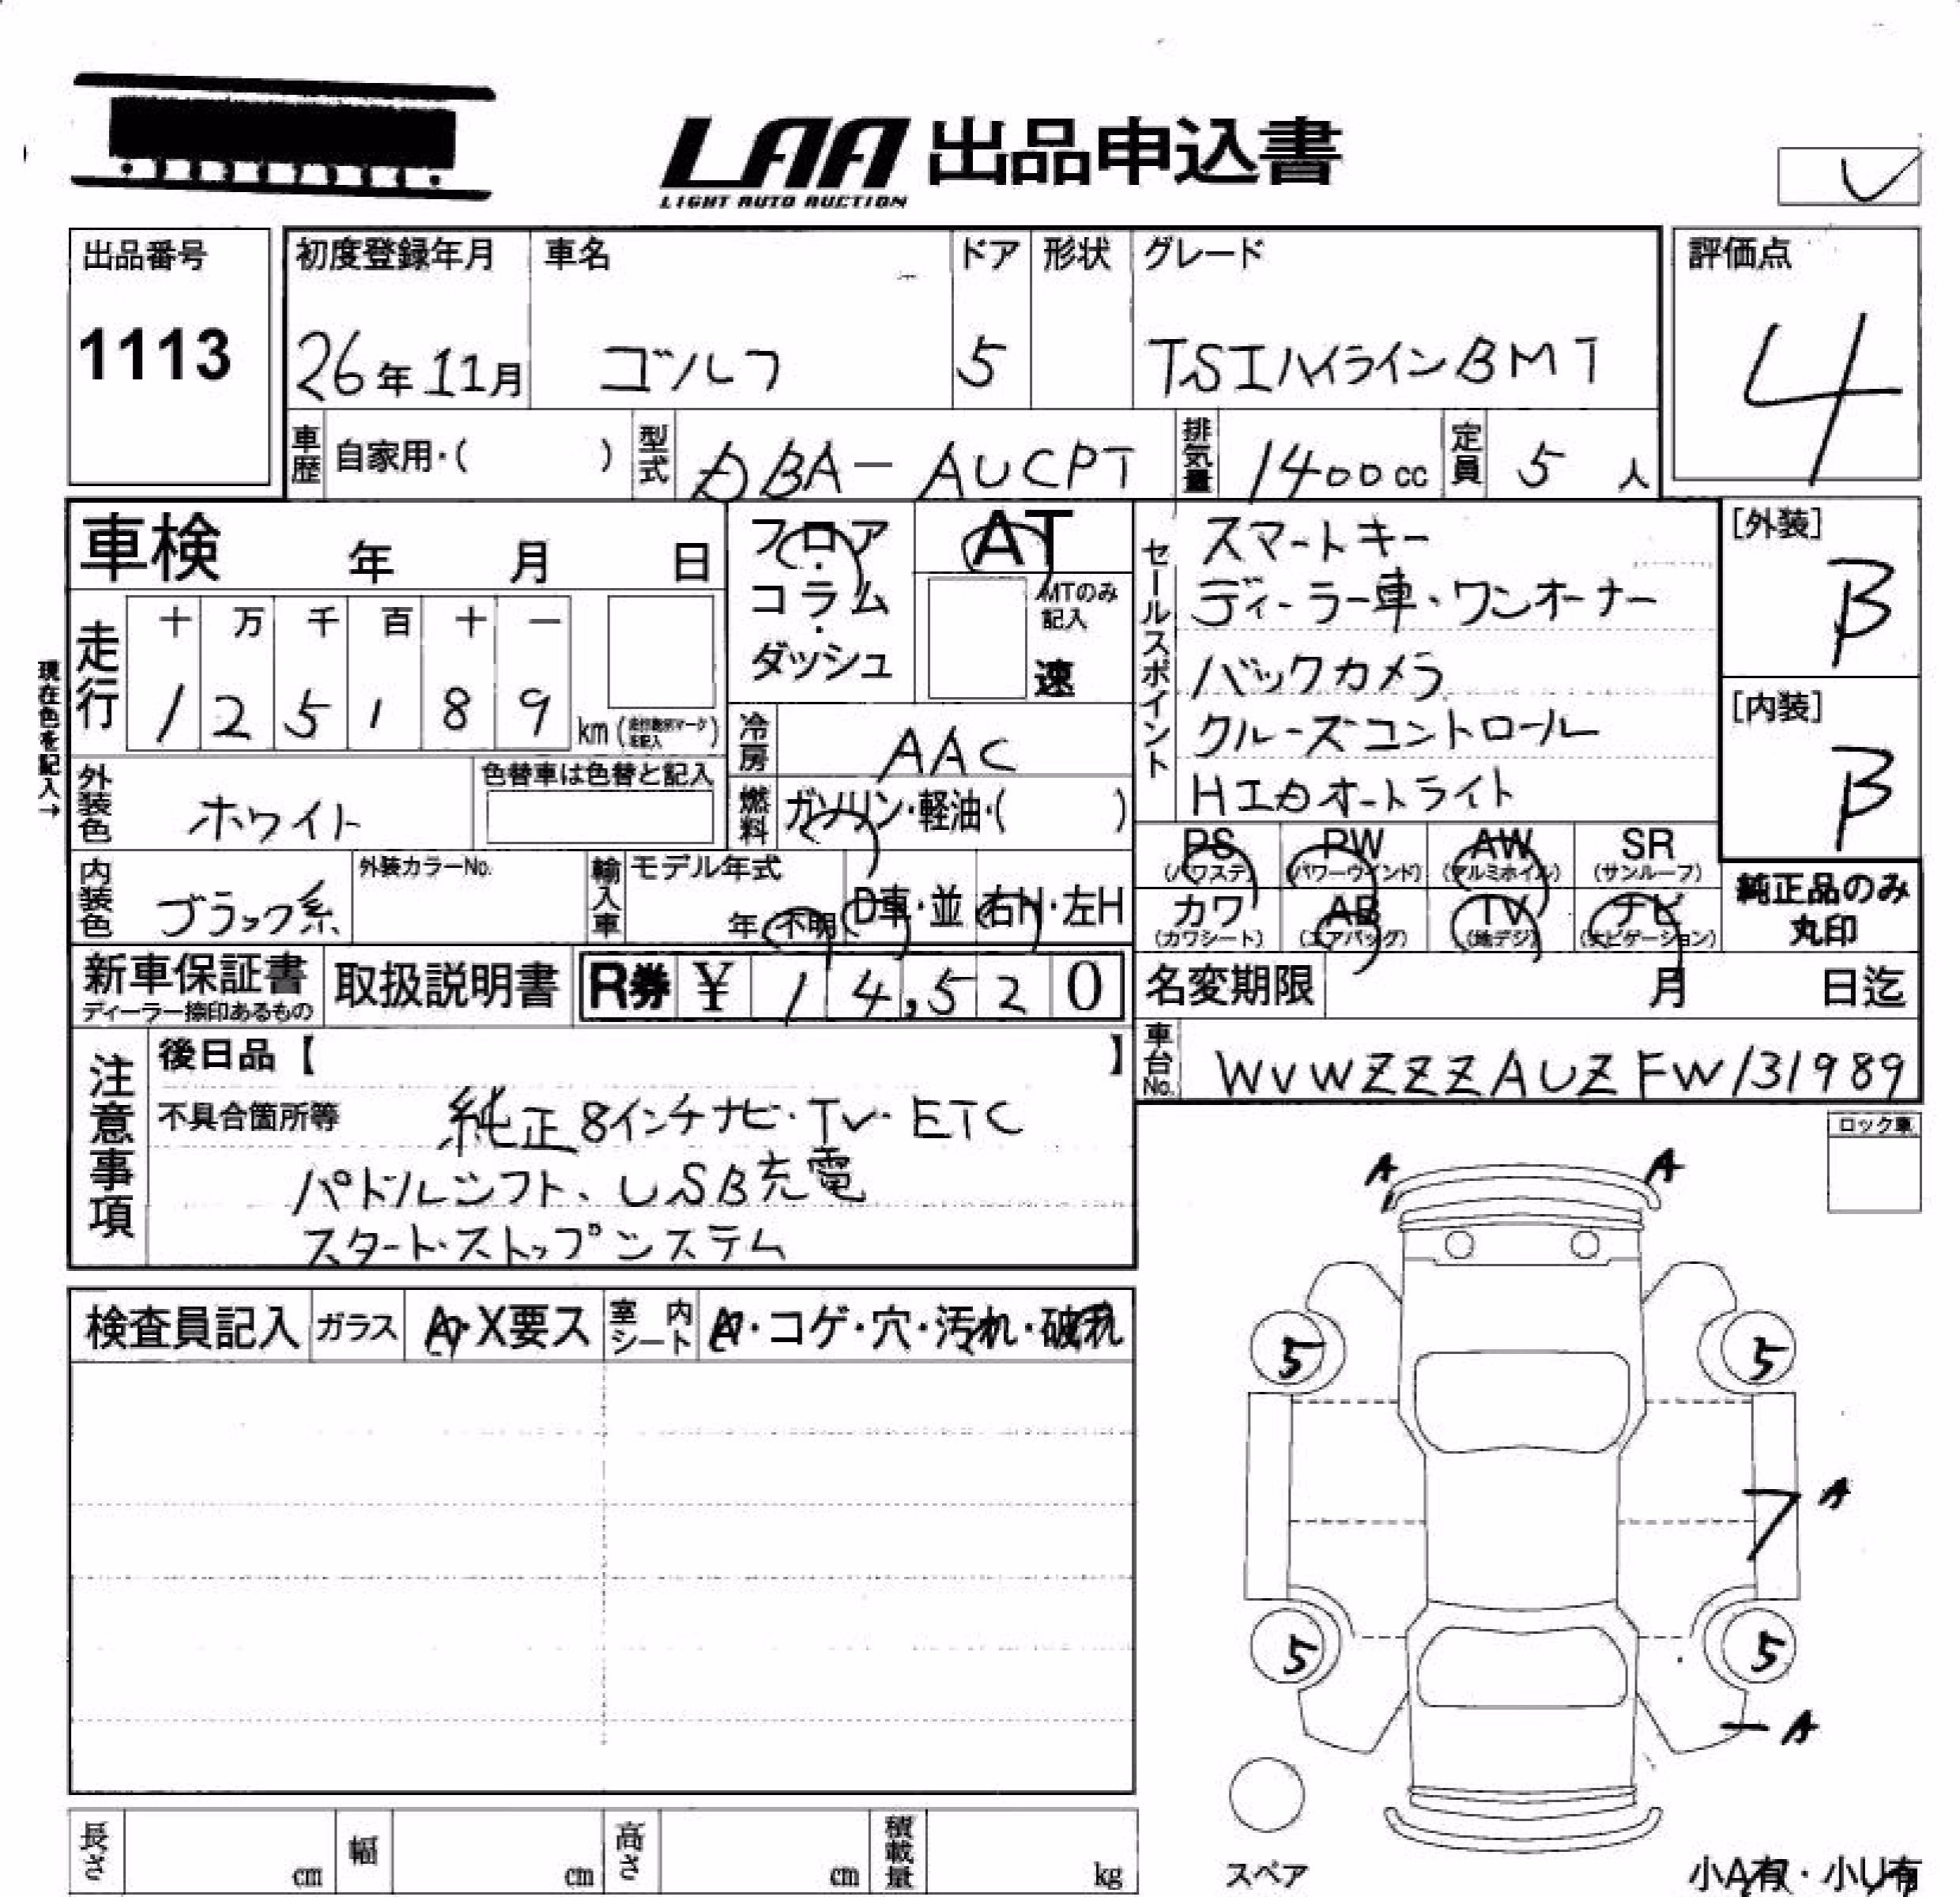 LAA 出品申込書
LIGHT AUTO AUCTION
出品番号
1113
初度登録年月 車名 ドア 形状 グレード
26年11月 ゴルフ 5 TSIハイラインBMT
評価点
4
車歴 自家用・( ) 型式 DBA-AUCPT 排気量 1400cc 定員 5人
車検 年 月 日
フロア・コラム・ダッシュ
AT
MTのみ記入
速
現在色を記入→
走行 十 万 千 百 十 一
1 2 5 1 8 9 km
冷房 AAC
燃料 ガソリン・軽油・( )
外装色 ホワイト
色替車は色替と記入
内装色 ブラック系
外装カラーNo.
輸入車 モデル年式 年 不明 D車・並 右H・左H
セールスポイント
スマートキー
ディーラー車・ワンオーナー
バックカメラ
クルーズコントロール
HIDオートライト
[外装]
B
[内装]
B
PS PW AW SR
(パワステ) (パワーウインド) (アルミホイル) (サンルーフ)
カワ AB TV ナビ
(カワシート) (エアバッグ) (地デジ) (ナビゲーション)
純正品のみ
丸印
新車保証書
ディーラー捺印あるもの
取扱説明書
R券 ¥ 14,520
名変期限 月 日迄
車台No. WVWZZZAUZFW131989
注意事項
後日品【 】
不具合箇所等 純正8インチナビ・TV・ETC
パドルシフト、USB充電
スタート・ストップシステム
ロック車
検査員記入 ガラス A・X要ス 室内シート A・コゲ・穴・汚れ・破れ
A A
5 5
A
フ
5 5
A
スペア
小A有・小U有
長さ cm 幅 cm 高さ cm 積載量 kg